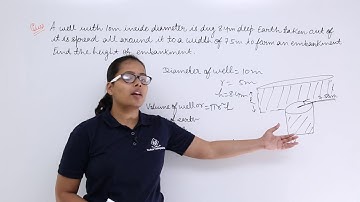 Que A well with 10m inside diameter is dug 8.4m deep. Earth taken out of
it is spread all around it to a width of 7.5m to form an embankment.
Find the height of embankment.
Diameter of well = 10m
r = 5m
h = 8.40m
Volume of well or = πr²h